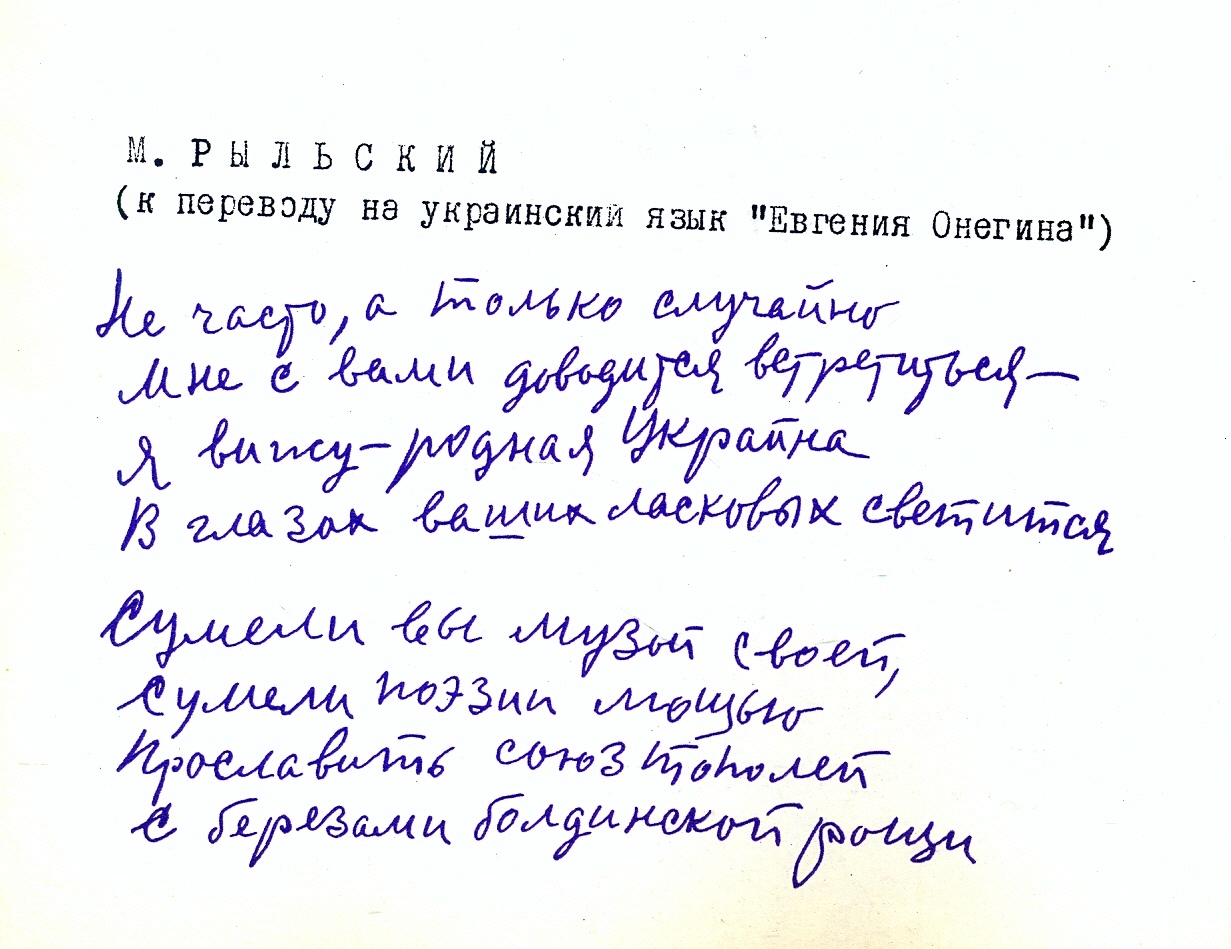 М. РЫЛЬСКИЙ
(к переводу на украинский язык "Евгения Онегина")
Не часто, а только случайно
Мне с вами доводится встретиться—
Я вижу—родная Украйна
В глазах ваших ласковых светится
Сумели вы музой своей,
Сумели поэзии мощью
Прославить союз тополей
С березами болдинской рощи